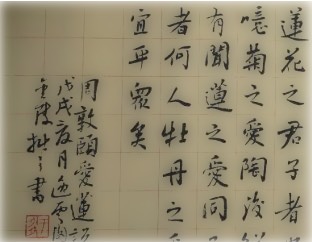 蓮花之君子者
噫菊之愛陶後鮮
有聞蓮之愛同
者何人牡丹之
宜乎眾矣
周敦頤愛蓮說
戊戌夏月
書